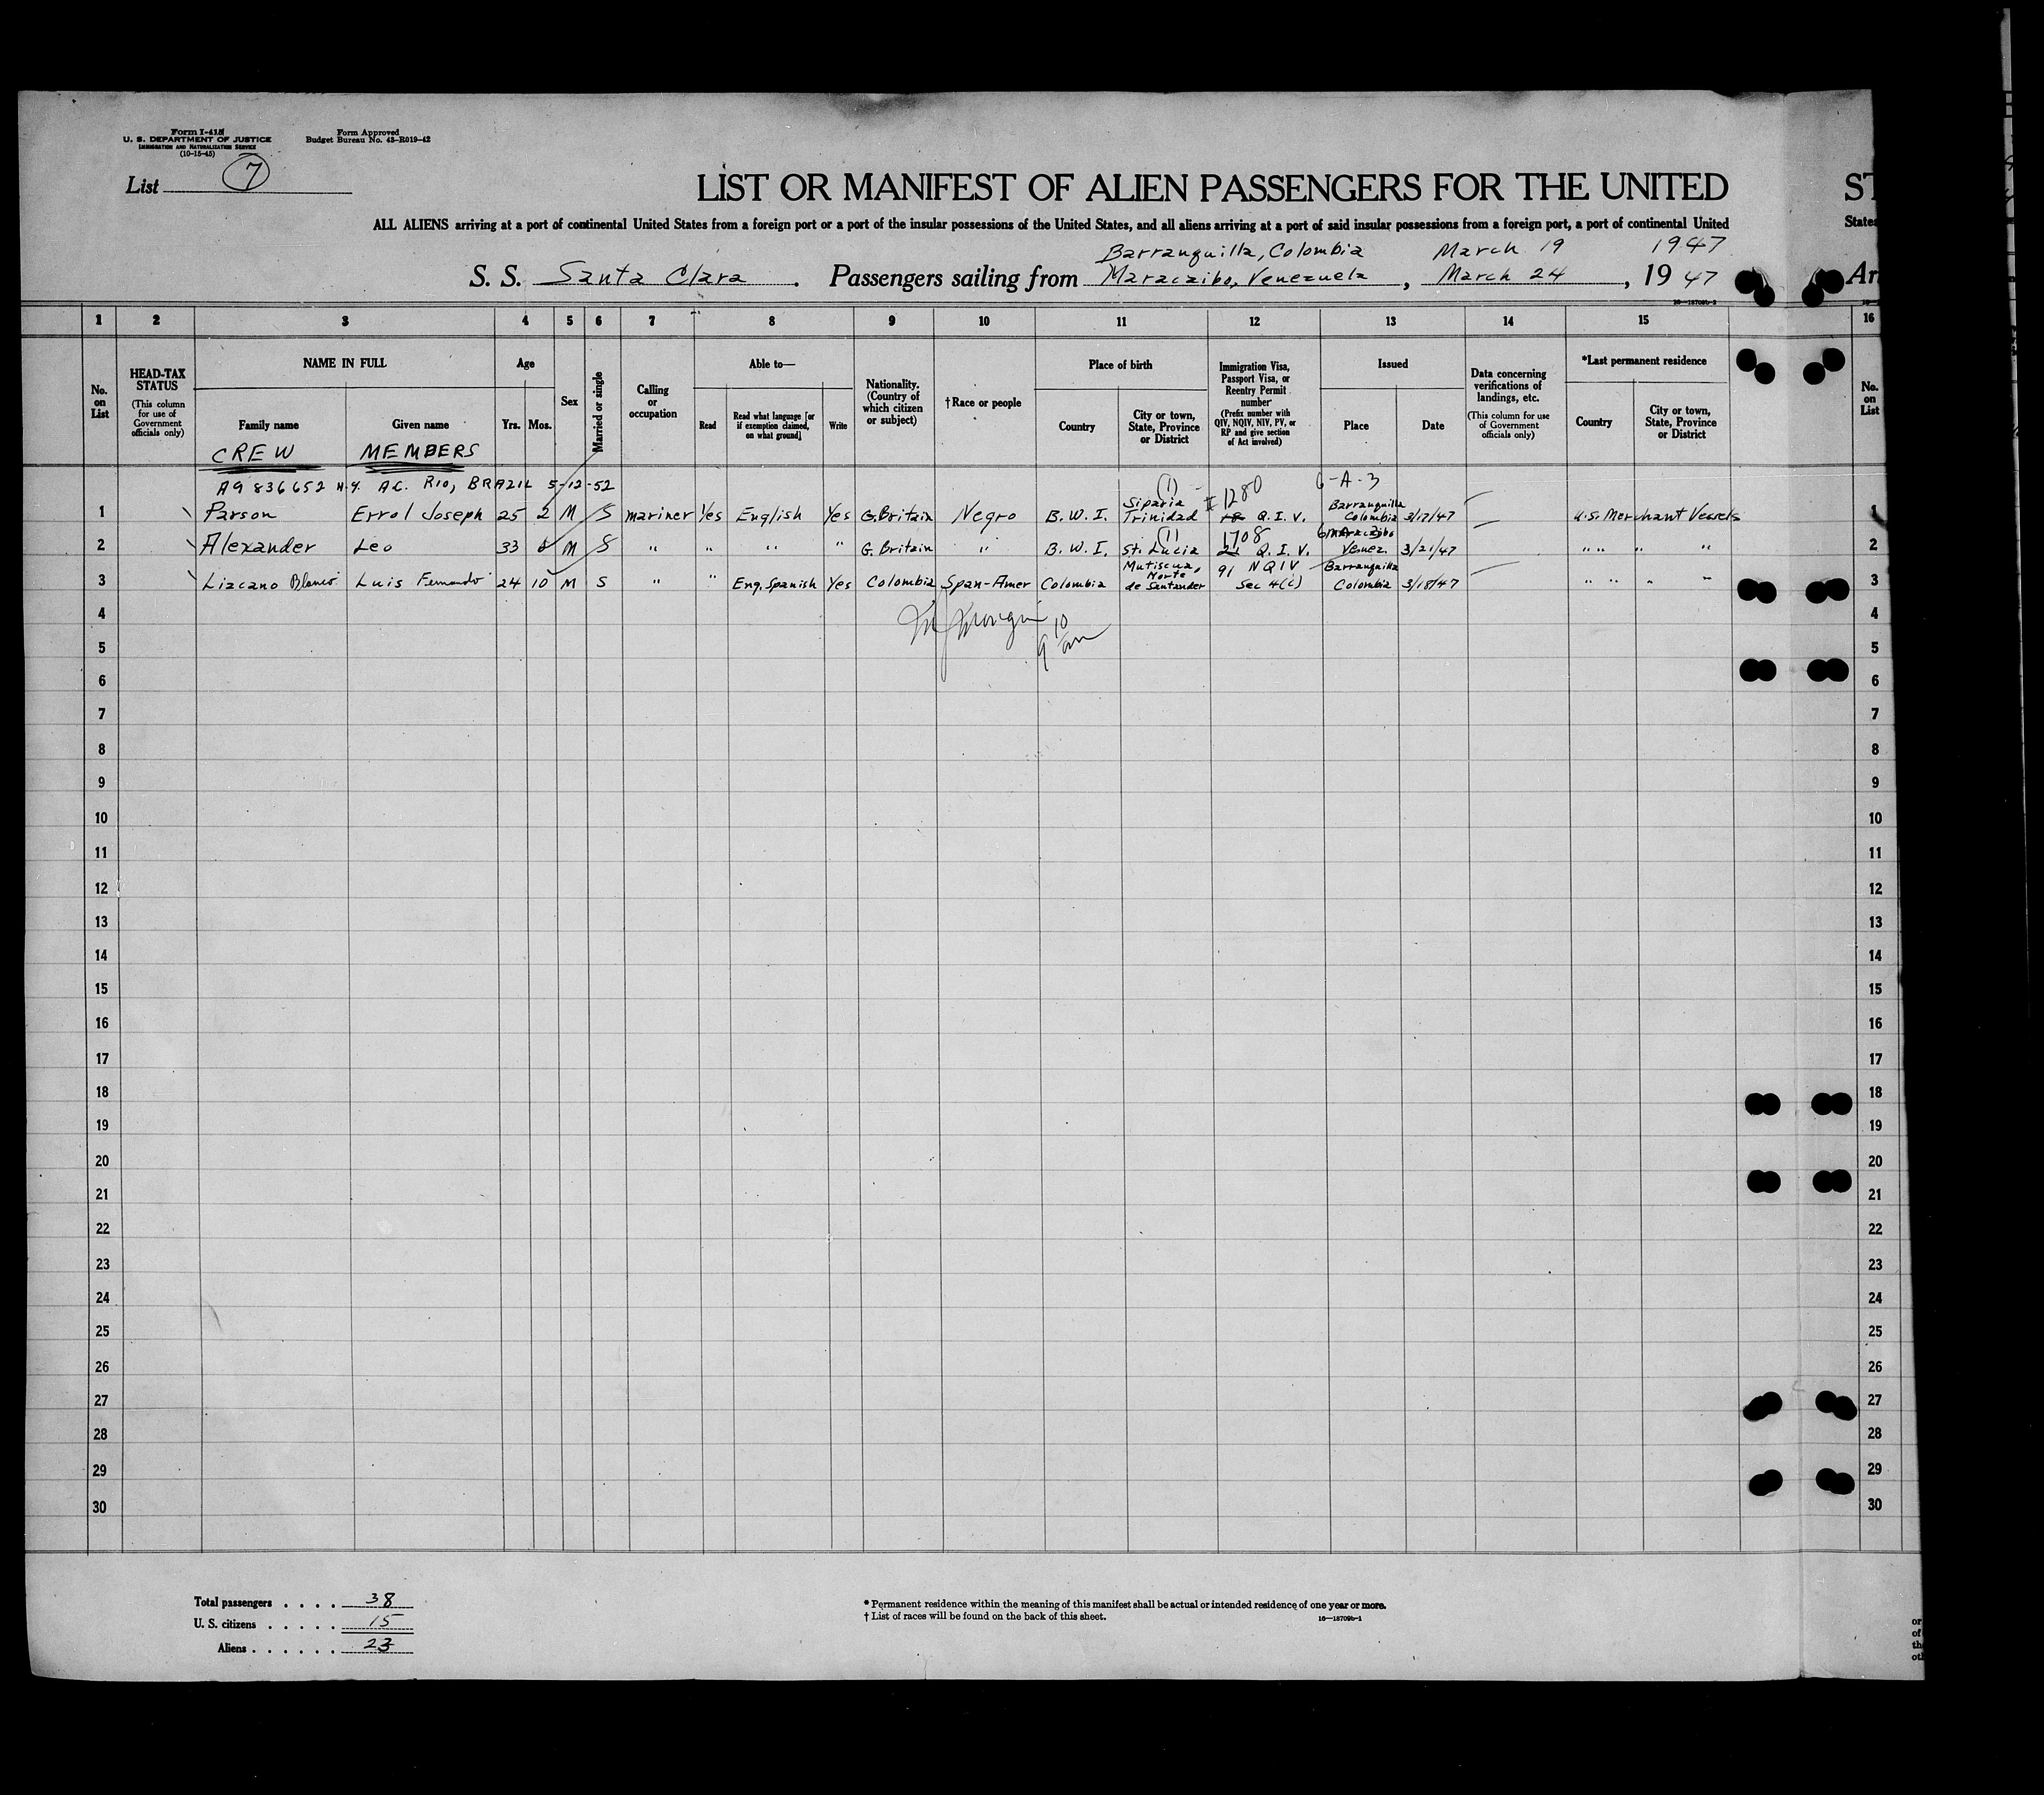 Form I-415
U. S. DEPARTMENT OF JUSTICE
IMMIGRATION AND NATURALIZATION SERVICE
(10-15-45)
Form Approved
Budget Bureau No. 43-R019-42
List 7
LIST OR MANIFEST OF ALIEN PASSENGERS FOR THE UNITED ST
ALL ALIENS arriving at a port of continental United States from a foreign port or a port of the insular possessions of the United States, and all aliens arriving at a port of said insular possessions from a foreign port, a port of continental United States
Barranquilla, Colombia March 19 1947
S. S. Santa Clara. Passengers sailing from Maracaibo, Venezuela, March 24, 19 47
Arr
1 2 3 4 5 6 7 8 9 10 11 12 13 14 15 16
No. on List
HEAD-TAX STATUS
(This column for use of Government officials only)
NAME IN FULL
Family name
Given name
Age
Yrs. Mos.
Sex
Married or single
Calling or occupation
Able to—
Read
Read what language [or if exemption claimed, on what ground]
Write
Nationality. (Country of which citizen or subject)
†Race or people
Place of birth
Country
City or town, State, Province or District
Immigration Visa, Passport Visa, or Reentry Permit number
(Prefix number with QIV, NQIV, NIV, PV, or RP and give section of Act involved)
Issued
Place
Date
Data concerning verifications of landings, etc.
(This column for use of Government officials only)
*Last permanent residence
Country
City or town, State, Province or District
No. on List
CREW MEMBERS
A9 836652 N.Y. AC. RIO, BRAZIL 5-12-52
(1) 1280 6-A-3
1 Parson Errol Joseph 25 2 M S mariner Yes English Yes G. Britain Negro B. W. I. Siparia Trinidad 18 Q. I. V. Barranquilla Colombia 3/17/47 U.S. Merchant Vessels 1
(1) 1708
2 Alexander Leo 33 M S " " " " G. Britain " B. W. I. St. Lucia 21 Q. I. V. Maracaibo Venez. 3/21/47 " " " " 2
3 Lizcano Blanco Luis Fernando 24 10 M S " " Eng, Spanish Yes Colombia Span-Amer Colombia Mutiscua, Norte de Santander 91 NQIV Sec 4(c) Barranquilla Colombia 3/18/47 " " " " 3
4 4
5 5
6 6
7 7
8 8
9 9
10 10
11 11
12 12
13 13
14 14
15 15
16 16
17 17
18 18
19 19
20 20
21 21
22 22
23 23
24 24
25 25
26 26
27 27
28 28
29 29
30 30
Total passengers . . . . 38
U. S. citizens . . . . . 15
Aliens . . . . . . 23
* Permanent residence within the meaning of this manifest shall be actual or intended residence of one year or more.
† List of races will be found on the back of this sheet.
16—18709b-1